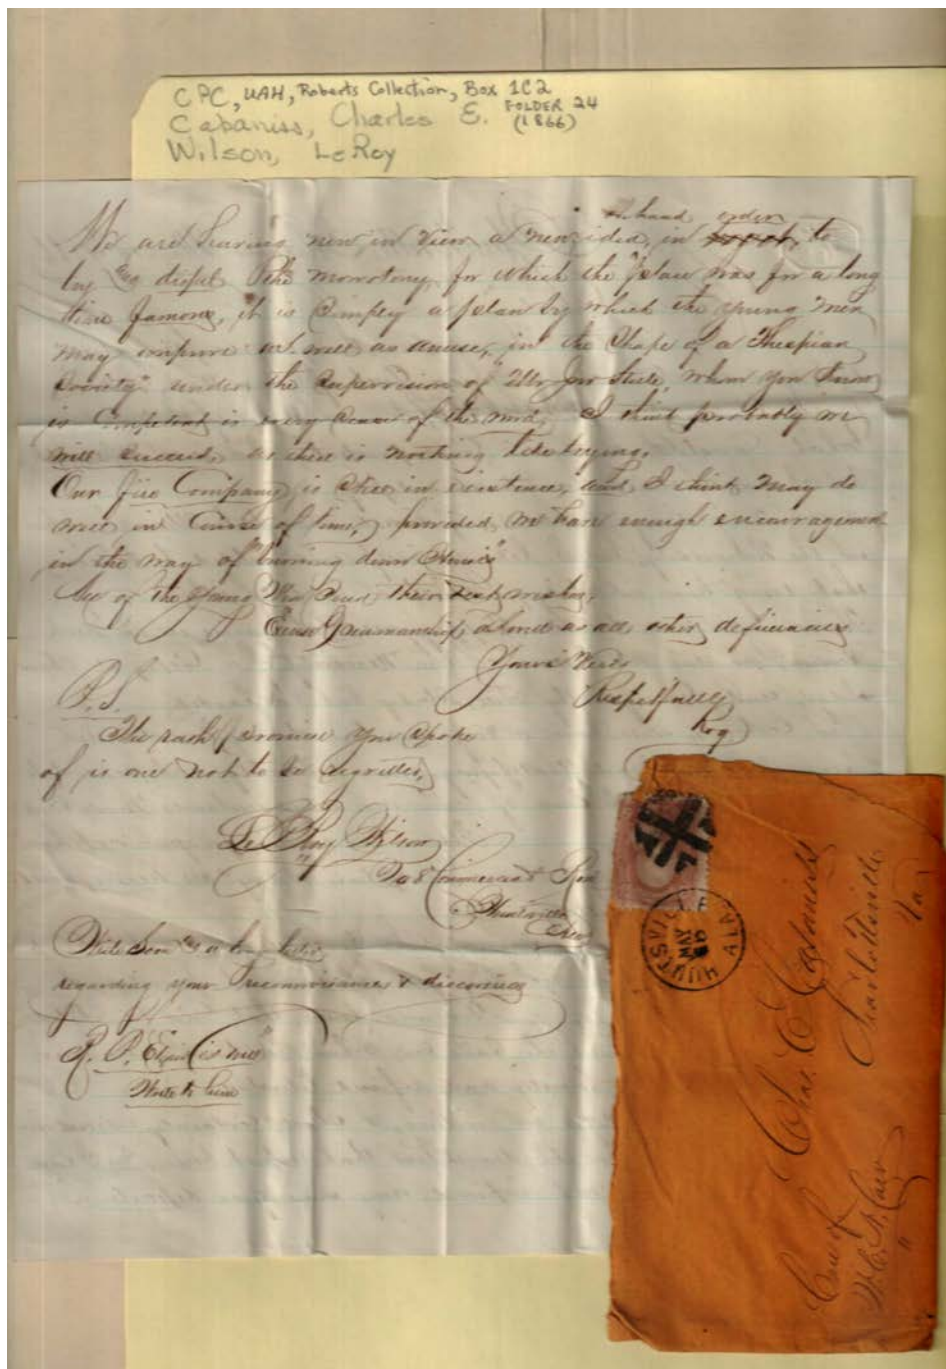 CPC, UAH, Roberts Collection, Box 1C2
FOLDER 24
Cabaniss, Charles E. (1866)
Wilson, LeRoy
on hand order
We are having now in view a new idea, in to
by dispel the monotony for which the place was for a long
time famous, it is simply a plan by which the young men
may improve as well as amuse, in the shape of a Thespian
Society" under the supervision of Mr Jno Steele, whom you know
is competent in every sense of the word, I think probably we
will succeed, as there is nothing like trying.
Our fire Company is still in existence, and I think may do
well in course of time, provided we have enough encouragement
in the way of "burning down
All of the young Men send their best wishes,
Excuse Penmanship, as all other deficiencies
Yours Very
Respectfully
Roy
P.S.
The rash promise you spoke
of is one not to be regretted,
Le Roy Wilson
Commercial Row
Huntsville
Ala
Write soon a long letter
regarding your reconnoisances & discoveries
R. P. is well"
Write to him
HUNTSVILLE ALA
MAY
Chas. E. Cabaniss
Charlottsville
Va
Care of
"